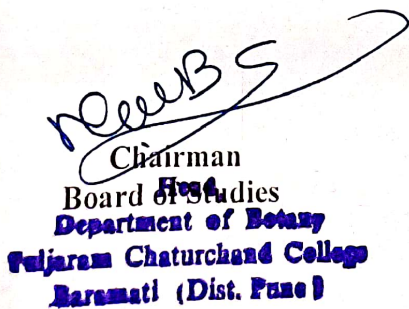 Chairman
Head,
Board of Studies
Department of Botany
Tuljaram Chaturchand College
Baramati (Dist. Pune)